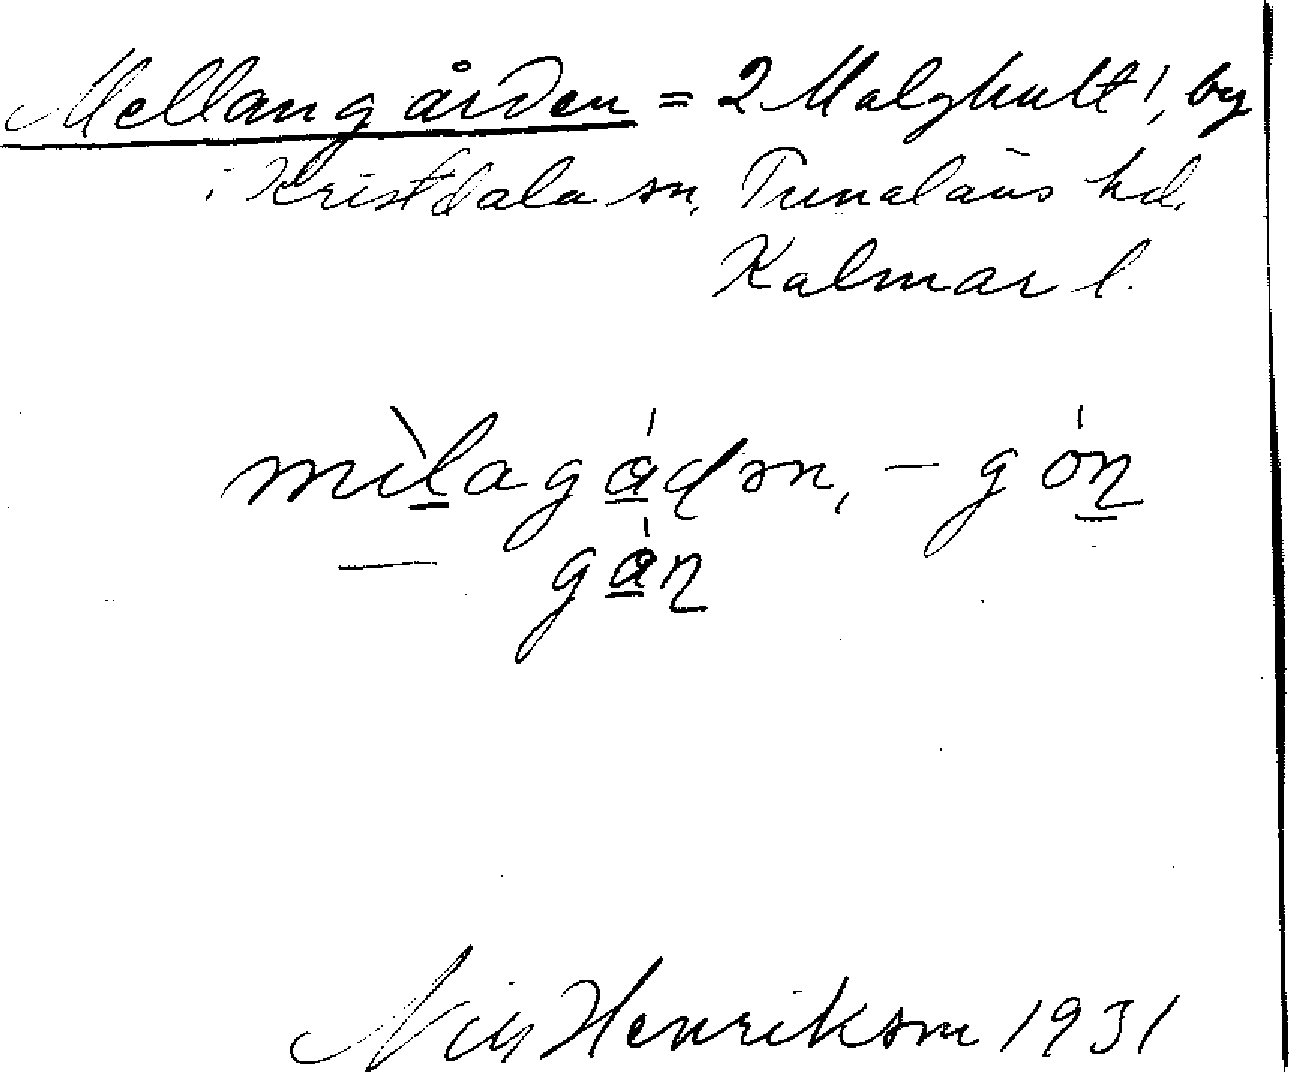 Mellangården = 2 Malghult 1, by
i Kristdala sn, Tunaläns hd,
Kalmar l.
mìlagådən, - gón
— gån
Nils Henrikson 1931